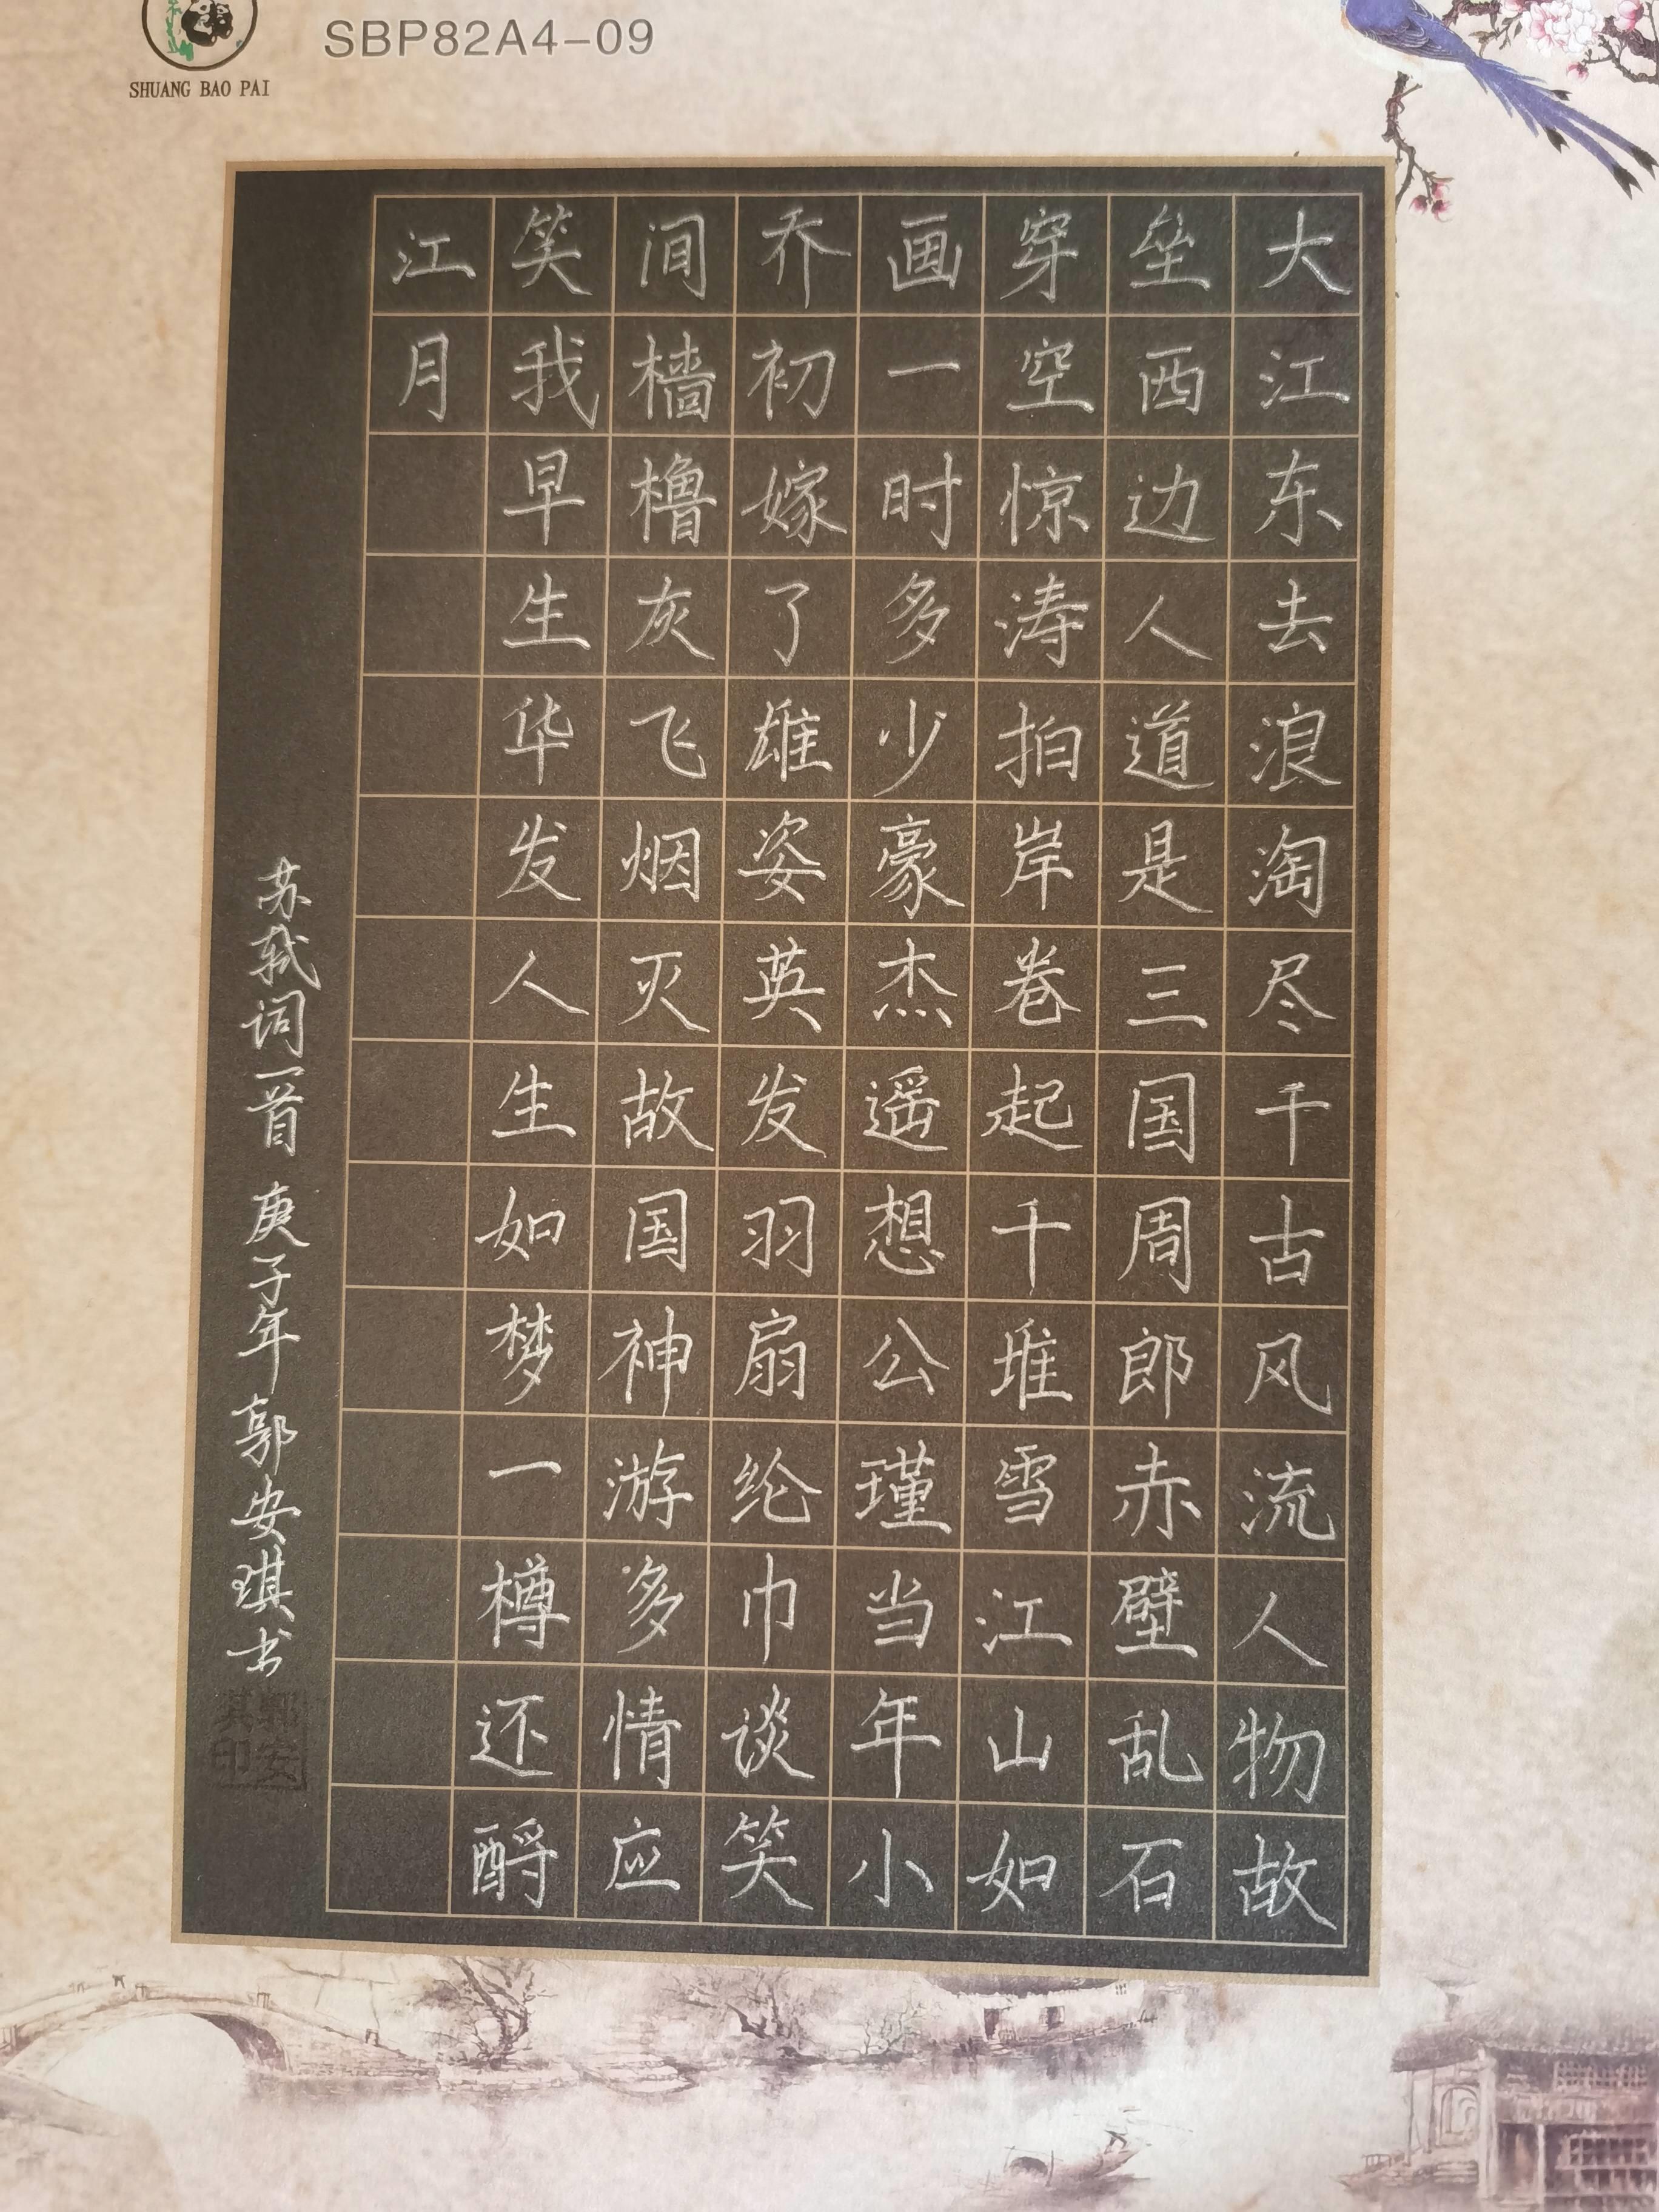 SHUANG BAO PAI
SBP82A4-09
大江东去浪淘尽千古风流人物故
垒西边人道是三国周郎赤壁乱石
穿空惊涛拍岸卷起千堆雪江山如
画一时多少豪杰遥想公瑾当年小
乔初嫁了雄姿英发羽扇纶巾谈笑
间樯橹灰飞烟灭故国神游多情应
笑我早生华发人生如梦一樽还酹
江月
苏轼词一首 庚子年 郭安琪书
郭安
琪印